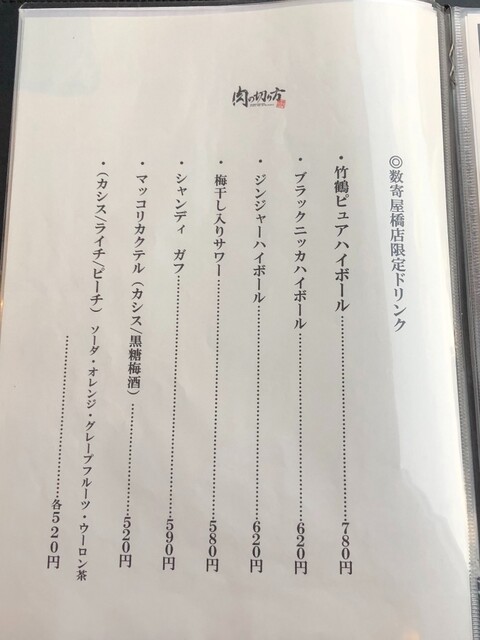 肉の切り方
◎数寄屋橋店限定ドリンク
・竹鶴ピュアハイボール………780円
・ブラックニッカハイボール………620円
・ジンジャーハイボール………620円
・梅干し入りサワー………580円
・シャンディ ガフ………590円
・マッコリカクテル(カシス/黒糖梅酒)………520円
・(カシス/ライチ/ピーチ) ソーダ・オレンジ・グレープフルーツ・ウーロン茶
………各520円